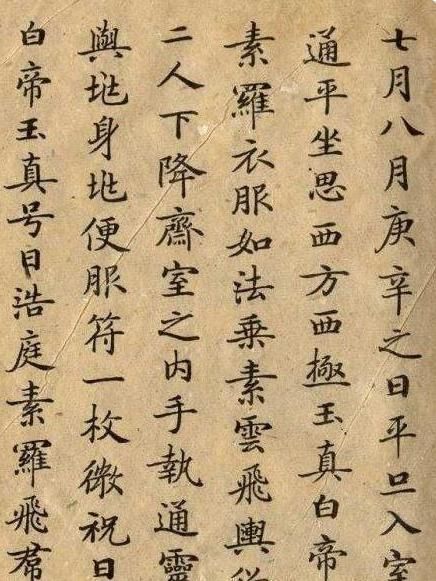 七月八月庚辛之日平旦入室
通平坐思西方西極玉真白帝
素羅衣服如法乘素雲飛輿從
二人下降齋室之内手執通靈
與兆身兆便服符一枚微祝曰
白帝玉真号曰浩庭素羅飛羣